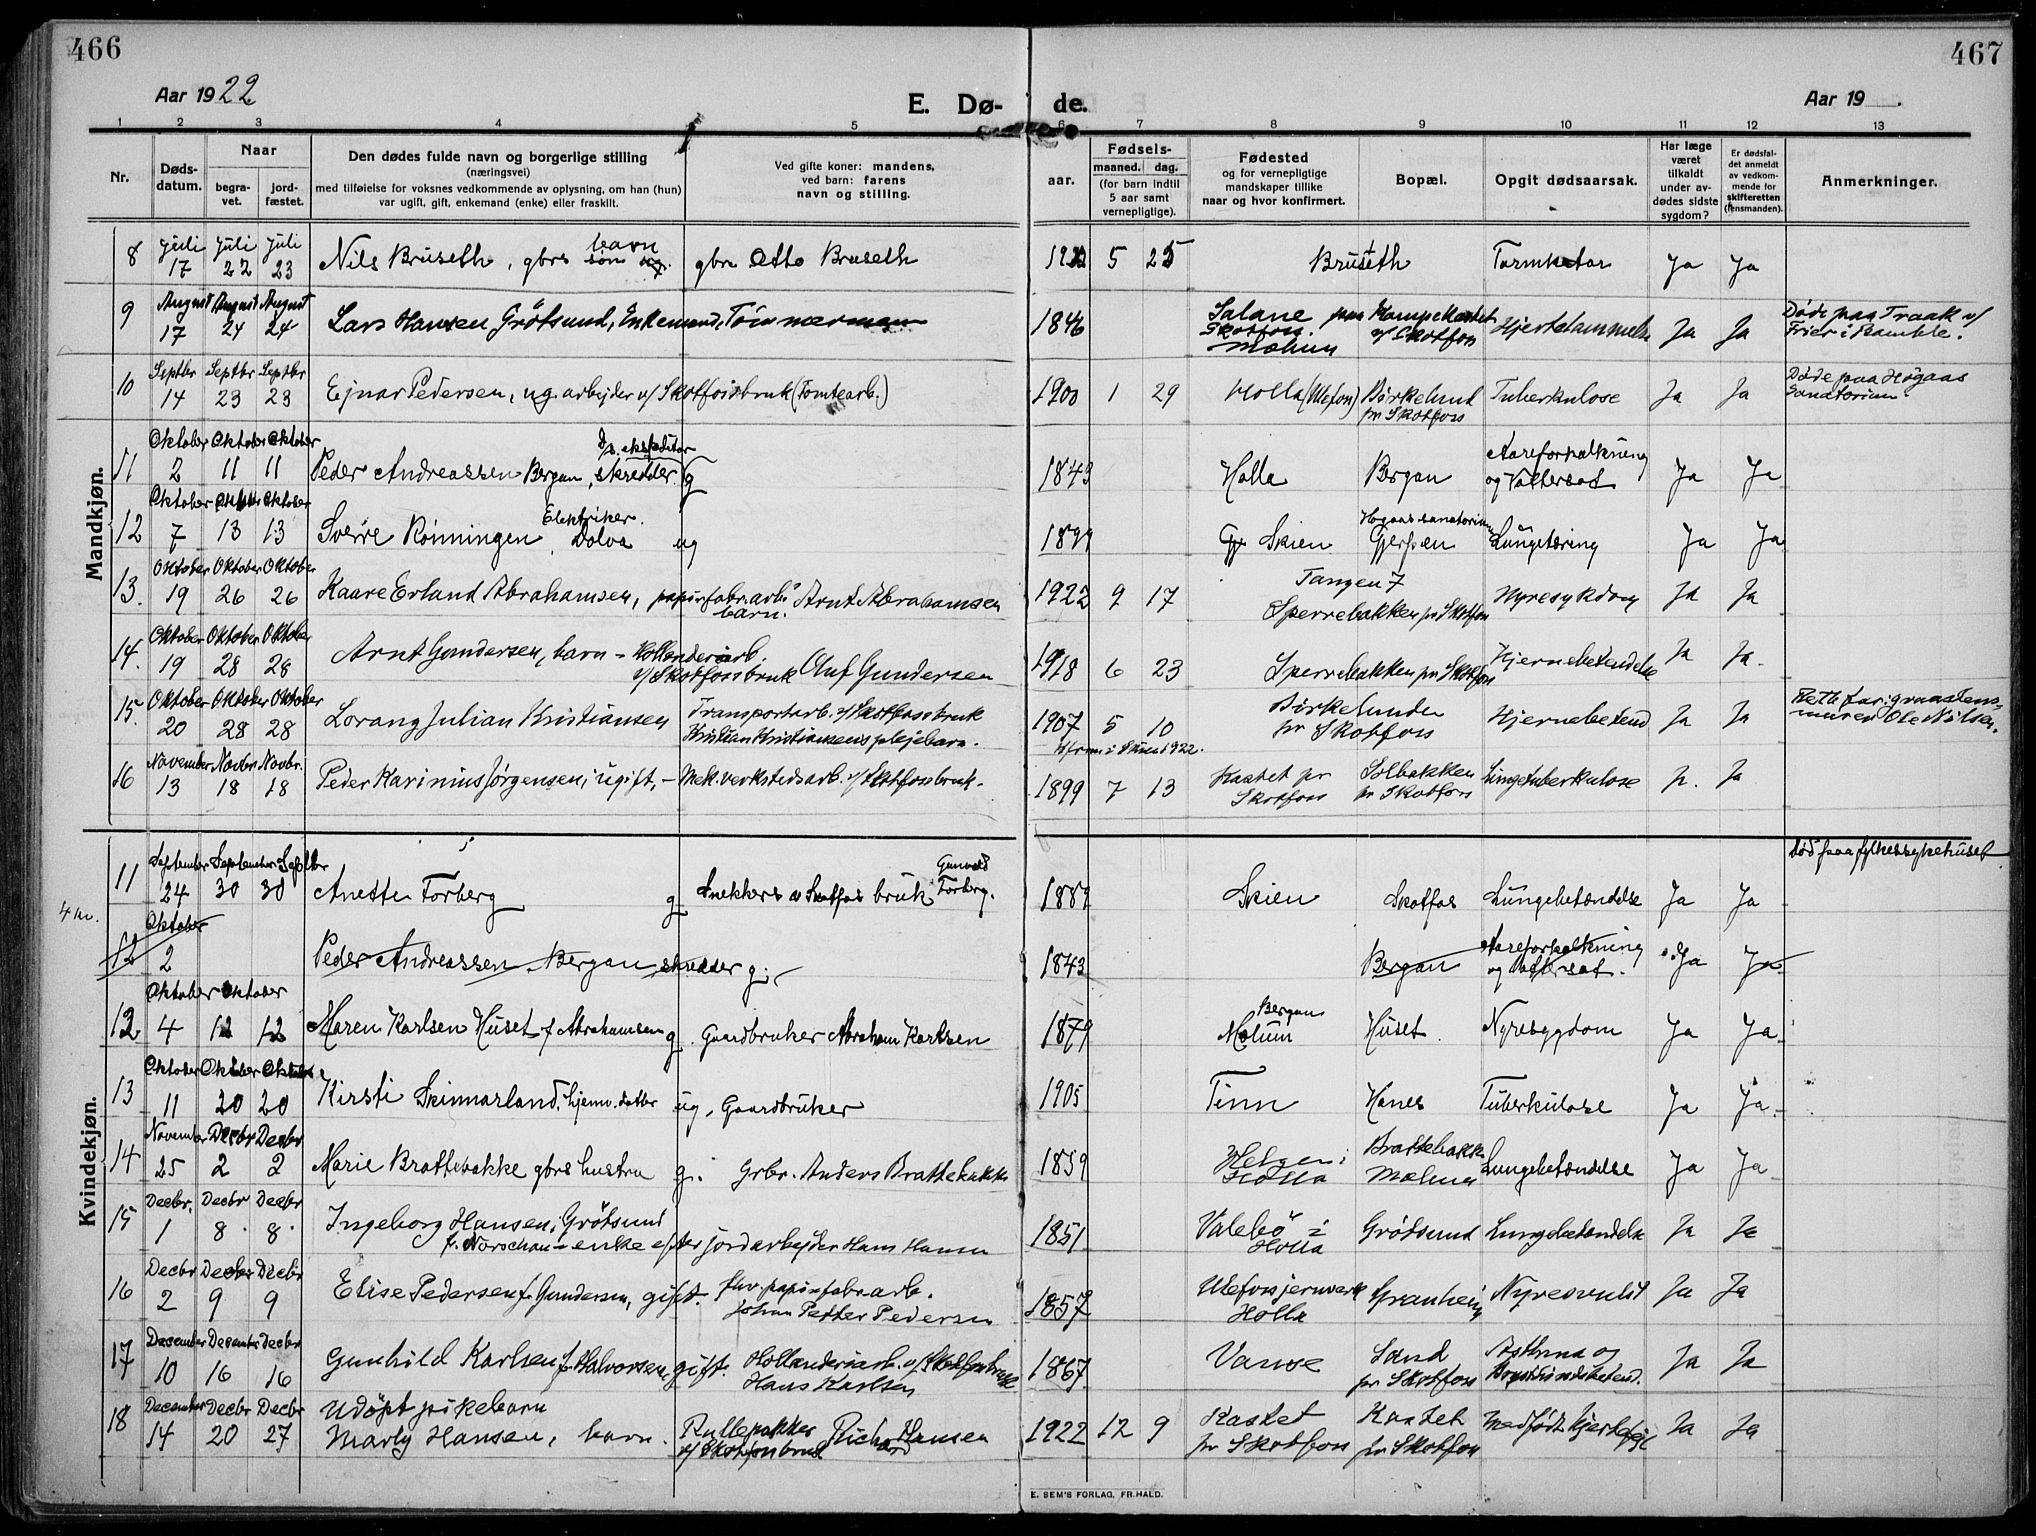 466
467
Aar 1922
E. Dø- de.
Aar 19 .
1 2 3 4 5 6 7 8 9 10 11 12 13
Nr.
Døds-
datum.
Naar
begra-
vet.
jord-
fæstet.
Den dødes fulde navn og borgerlige stilling
(næringsvei)
med tilføielse for voksnes vedkommende av oplysning, om han (hun)
var ugift, gift, enkemand (enke) eller fraskilt.
Ved gifte koner: mandens,
ved barn: farens
navn og stilling.
Fødsels-
aar.
maaned. dag.
(for barn indtil
5 aar samt
vernepligtige).
Fødested
og for vernepligtige
mandskaper tillike
naar og hvor konfirmert.
Bopæl.
Opgit dødsaarsak.
Har læge
været
tilkaldt
under av-
dødes sidste
sygdom?
Er dødsfal-
det anmeldt
av vedkom-
mende for
skifteretten
(lensmanden).
Anmerkninger.
Mandkjøn.
8 Juli 17 Juli 22 Juli 23 Nils Bruseth, gbrs barn søn ug. gbr Otto Bruseth 1922 5 25 Bruseth Tarmkatar Ja Ja
9 August 17 August 24 August 24 Lars Hansen Grötsund, Enkemand, Tömmermann 1846 Salane
Skotfoss. Mælum v/ Skotfoss Hjertelammelse Ja Ja Døde paa Traak v/
Frier i Bamble.
10 Septbr 14 Septbr 23 Septbr 23 Ejnar Pedersen, ug. arbejder v/ Skotfossbruk (Tomtearb.) 1900 1 29 Holla (Ulefos) Børkelund
pr Skotfoss Tuberkulose Ja Ja Døde paa Høgaas
Sanatorium.
11 Oktober 2 Oktober 11 Oktober 11 Peder Andreassen Bergan, skredder. g D/s. ekspeditør 1843 Holla Bergan Aareforkalkning
og Vattersot Ja Ja
12 Oktober 7 Oktober 13 Oktober 13 Sverre Rönningen, Dolva Elektriker. ug 1899 Gjr Skien Høgaas sanatorium
Gjerpen Lungetæring Ja Ja
13. Oktober 19 Oktober 26 Oktober 26 Kaare Erland Abrahamsen, papirfabr.arb.s
barn. Arnt Abrahamsen 1922 9 17 Tangen 7
Sperrebakken pr Skotfos Nyresykdom Ja Ja
14. Oktober 19 Oktober 28 Oktober 28 Arnt Gundersen, barn – Hollenderiarb.
v/ Skotfossbruk Oluf Gundersen 1918 6 23 Sperrebakken pr Skotfos Hjernebetendelse Ja Ja.
15. Oktober 20 Oktober 28 Oktober 28 Lorang Julian Kristiansen Transportarb. v/ Skotfossbruk
Kristian Kristiansens plejebarn. 1907 5 10 Børkelunden
pr Skotfoss Hjernebetend Ja Ja Rette far: graastens-
murer Ole Nilsen.
16 November 13 Novbr 18 Novbr. 18 Peder Karinius Jørgensen, ugift, – Mek. verkstedsarb. v/ Skotfossbruk. 1899 7 13 Kastet pr
Skotfoss Solbakken
pr Skotfoss Lungetuberkulose Ja. Ja
Kvindekjøn.
4 kv.
11 September 24 September 30 Septbr 30 Anette Forberg g Snekkers v Skotfos bruk Gunvald
Forberg. 1889 Skien Skotfos Lungebetændelse Ja Ja død paa fylkessykehuset
12 Oktober 2 Peder Andreassen Bergan, skredder g. 1843 Bergan Aareforkalkning
og Vattersot. Ja Ja
12 Oktober 4 Oktober 12 12 Maren Karlsen Huset f. Abrahamsen g. Gaardbruker Abraham Karlsen 1879 Bergan
Mælum Huset. Nyresygdom Ja Ja
13 Oktober 11 Oktober 20 Oktober 20 Kirsti Skinnarland, hjemv. datter ug, Gaardbruker 1905 Tinn Hanes Tuberkulose Ja Ja
14 November 25 Decbr 2 Decbr 2 Marie Brattebakke gbrs hustru g. Grbr. Anders Brattebakke 1859 Helgen i
Holla Brattebakke
Mælum Lungebetændelse Ja Ja
15 Decbr. 1 Decbr 8 Decbr 8 Ingeborg Hansen, Grötsund
f. Norschau – enke efter jordarbejder Hans Hansen 1851 Valebö i
Holla Grötsund Lungebetændelse Ja Ja
16 Decbr 2 Decbr 9 Decbr 9 Elise Pedersen f. Gundersen, gift. fhv papirfabr.arb.
Johan Petter Pedersen 1857 Ulefossjernverk
Holla Granheim Nyresvulst Ja Ja
17 December 10 December 16 Decbr 16 Gunhild Karlsen f. Halvorsen, gift. Hollenderiarb. v/ Skotfossbruk
Hans Karlsen 1867 Vanse Sand
pr Skotfoss Asthma og
Brysthindebetend. Ja Ja
18 December 14 Decbr 20 Decbr 27 Udöpt pikebarn
Marly Hansen, barn. Rullepakker
v/ Skotfossbruk Richard Hansen 1922 12 9 Kastet
pr Skotfoss Kastet
pr Skotfoss Medfødt hjertefejl Ja Ja
E. SEM'S FORLAG, FR.HALD.